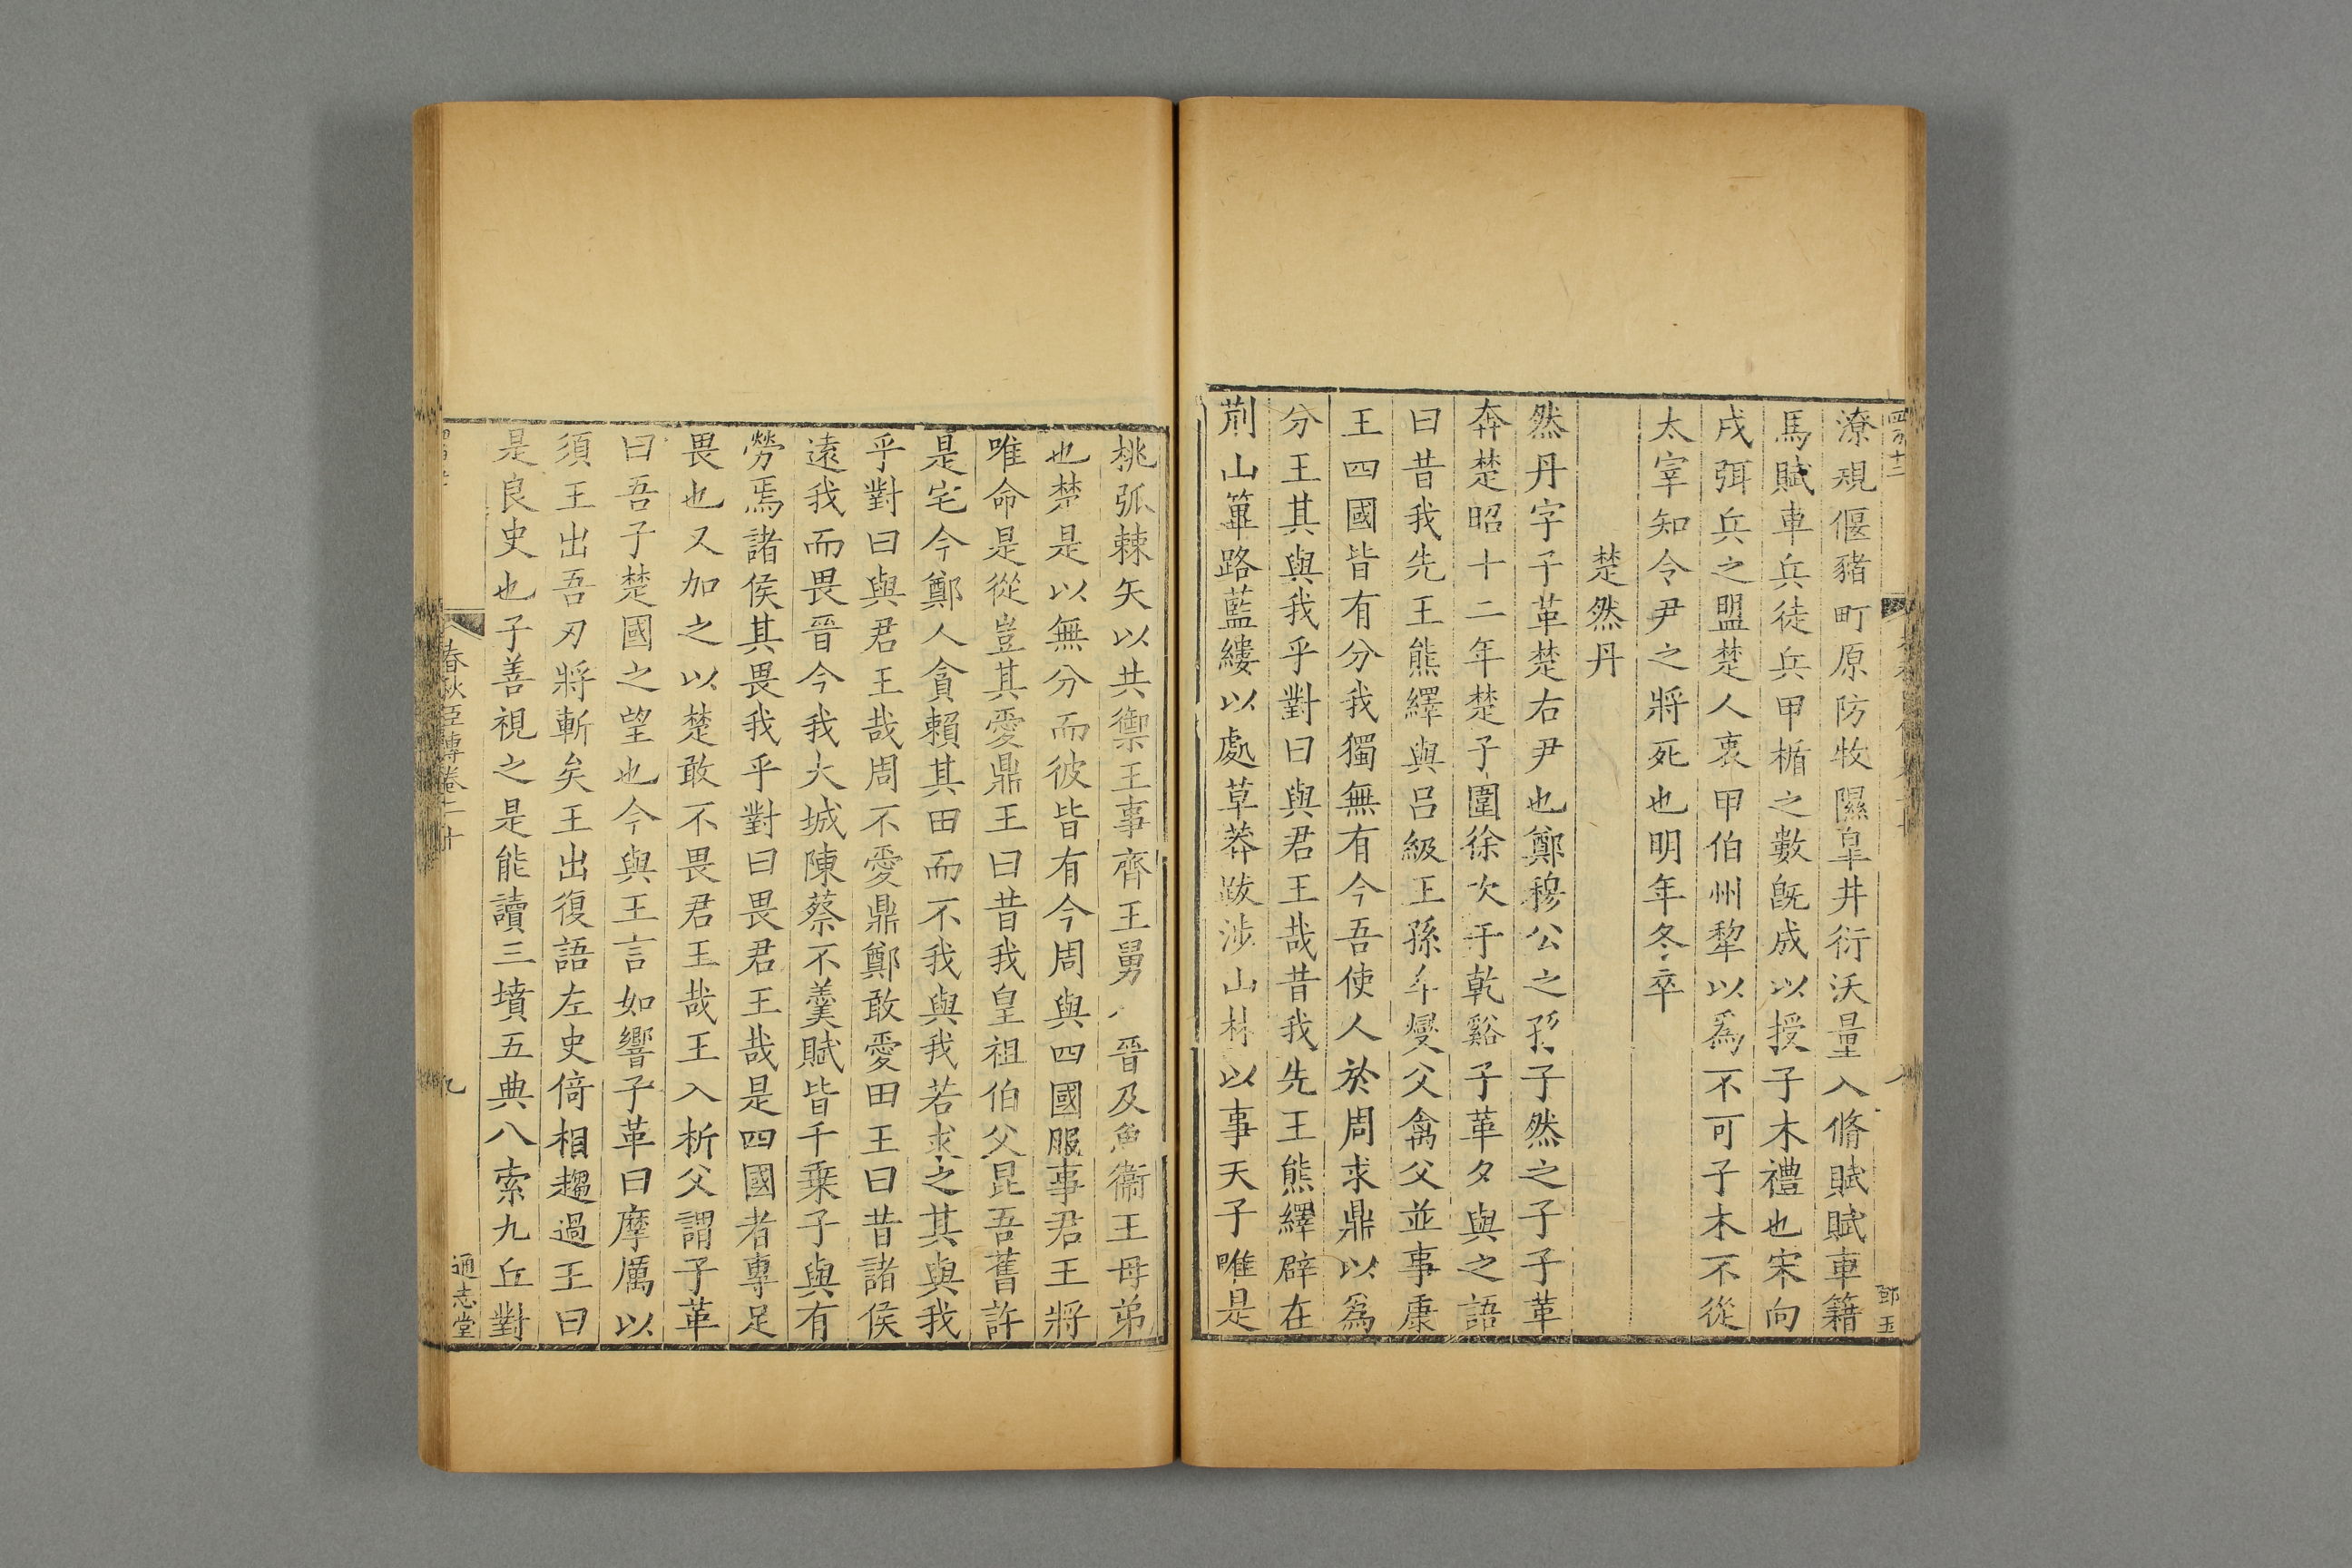 潦規偃豬町原防牧隰臯井衍沃量入脩賦賦車籍
馬賦車兵徒兵甲楯之數旣成以授子木禮也宋向
戌弭兵之盟楚人衷甲伯州犂以爲不可子木不從
太宰知令尹之將死也明年冬卒
楚然丹
然丹字子革楚右尹也鄭穆公之孫子然之子子革
奔楚昭十二年楚子圍徐次于乾谿子革夕與之語
曰昔我先王熊繹與呂級王孫牟燮父禽父並事康
王四國皆有分我獨無有今吾使人於周求鼎以爲
分王其與我乎對曰與君王哉昔我先王熊繹辟在
荊山篳路藍縷以處草莽跋涉山林以事天子唯是
鄧玉
桃弧棘矢以共禦王事齊王舅 晉及魚衞王母弟
也楚是以無分而彼皆有今周與四國服事君王將
唯命是從豈其愛鼎王曰昔我皇祖伯父昆吾舊許
是宅今鄭人貪賴其田而不我與我若求之其與我
乎對曰與君王哉周不愛鼎鄭敢愛田王曰昔諸侯
遠我而畏晉今我大城陳蔡不羹賦皆千乗子與有
勞焉諸侯其畏我乎對曰畏君王哉是四國者專足
畏也又加之以楚敢不畏君王哉王入析父謂子革
曰吾子楚國之望也今與王言如響子革曰摩厲以
須王出吾刃將斬矣王出復語左史倚相趨過王曰
是良史也子善視之是能讀三墳五典八索九丘對
春秋臣傳卷二十
九
通志堂